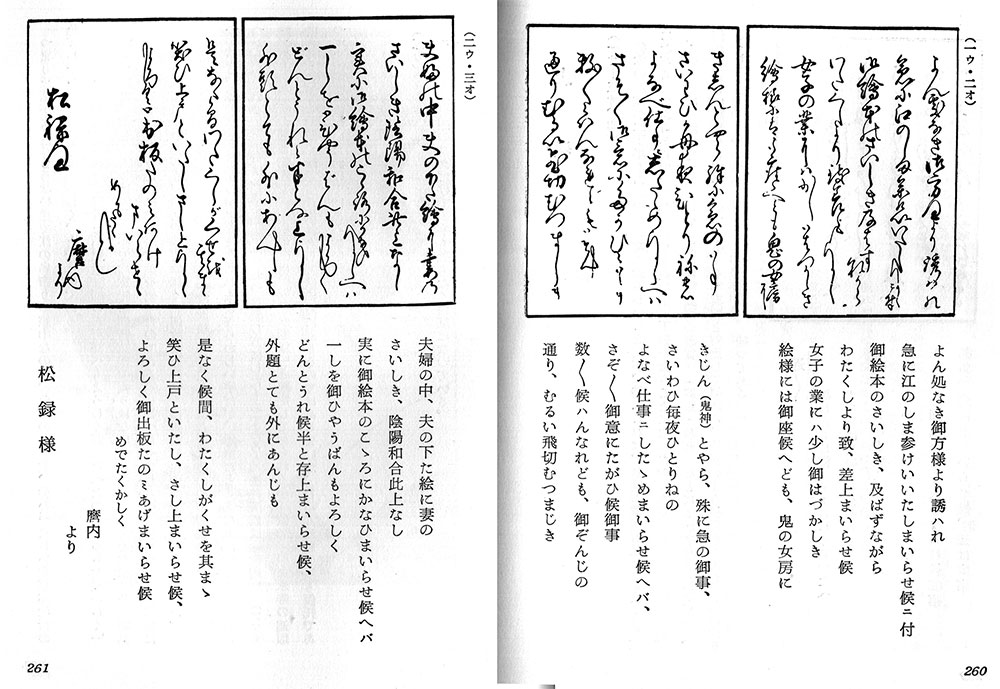 （一ゥ・二オ）
よん処なき御方様より誘ハれ
急に江のしま参けいいたしまいらせ候ニ付
御絵本のさいしき、及ばずながら
わたくしより致、差上まいらせ候
女子の業にハ少し御はづかしき
絵様には御座候へども、鬼の女房に
きじん（鬼神）とやら、殊に急の御事、
さいわひ毎夜ひとりねの
よなべ仕事ニしたゝめまいらせ候へバ、
さぞ〳〵御意にたがひ候御事
数〳〵候ハんなれども、御ぞんじの
通り、むるい飛切むつまじき
260
（二ゥ・三オ）
夫婦の中、夫の下た絵に妻の
さいしき、陰陽和合此上なし
実に御絵本のこゝろにかなひまいらせ候へバ
一しを御ひやうばんもよろしく
どんとうれ候半と存上まいらせ候、
外題とても外にあんじも
是なく候間、わたくしがくせを其まゝ
笑ひ上戸といたし、さし上まいらせ候、
よろしく御出板たのミあげまいらせ候
めでたくかしく
麿内
より
松録様
261